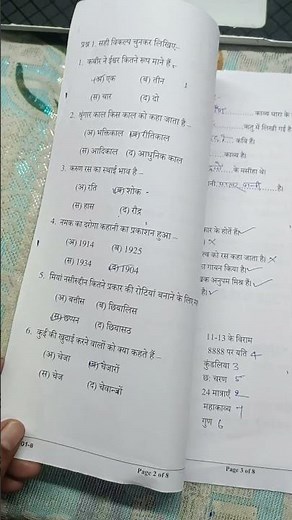 प्रश्न 1. सही विकल्प चुनकर लिखिए-
1. कबीर ने ईश्वर कितने रूप माने हैं-
(अ) एक (ब) तीन
(स) चार (द) दो
2. श्रृंगार काल किस काल को कहा जाता है-
(अ) भक्तिकाल (ब) रीतिकाल
(स) आदिकाल (द) आधुनिक काल
3. करुण रस का स्थाई भाव है-
(अ) रति (ब) शोक
(स) हास (द) रौद्र
4. नमक का दरोगा कहानी का प्रकाशन हुआ-
(अ) 1914 (ब) 1925
(स) 1934 (द) 1904
5. मियां नसीरुद्दीन कितने प्रकार की रोटियां बनाने के लिए
(अ) बत्तीस (ब) छियालिस
(स) छप्पन (द) छियासठ
6. कुईं की खुदाई करने वालों को क्या कहते हैं-
(अ) चेजा (ब) चेजारों
(स) चेज (द) चेवान्जों
Page 2 of 8
काव्य धारा के
ऋतु में लिखी गई है
कवि हैं।
काव्य है।
के मसीहा थे।
है।
सार के होते हैं।
रस कहा जाता है। ×
गायन किया है।
अनुपम मिश्र हैं।
है।
11-13 के विराम
8888 पर यति 4
कुंडलिया 3
छः चरण 5
24 मात्राएँ 2
महाकाव्य 1
गुण 6
Page 3 of 8